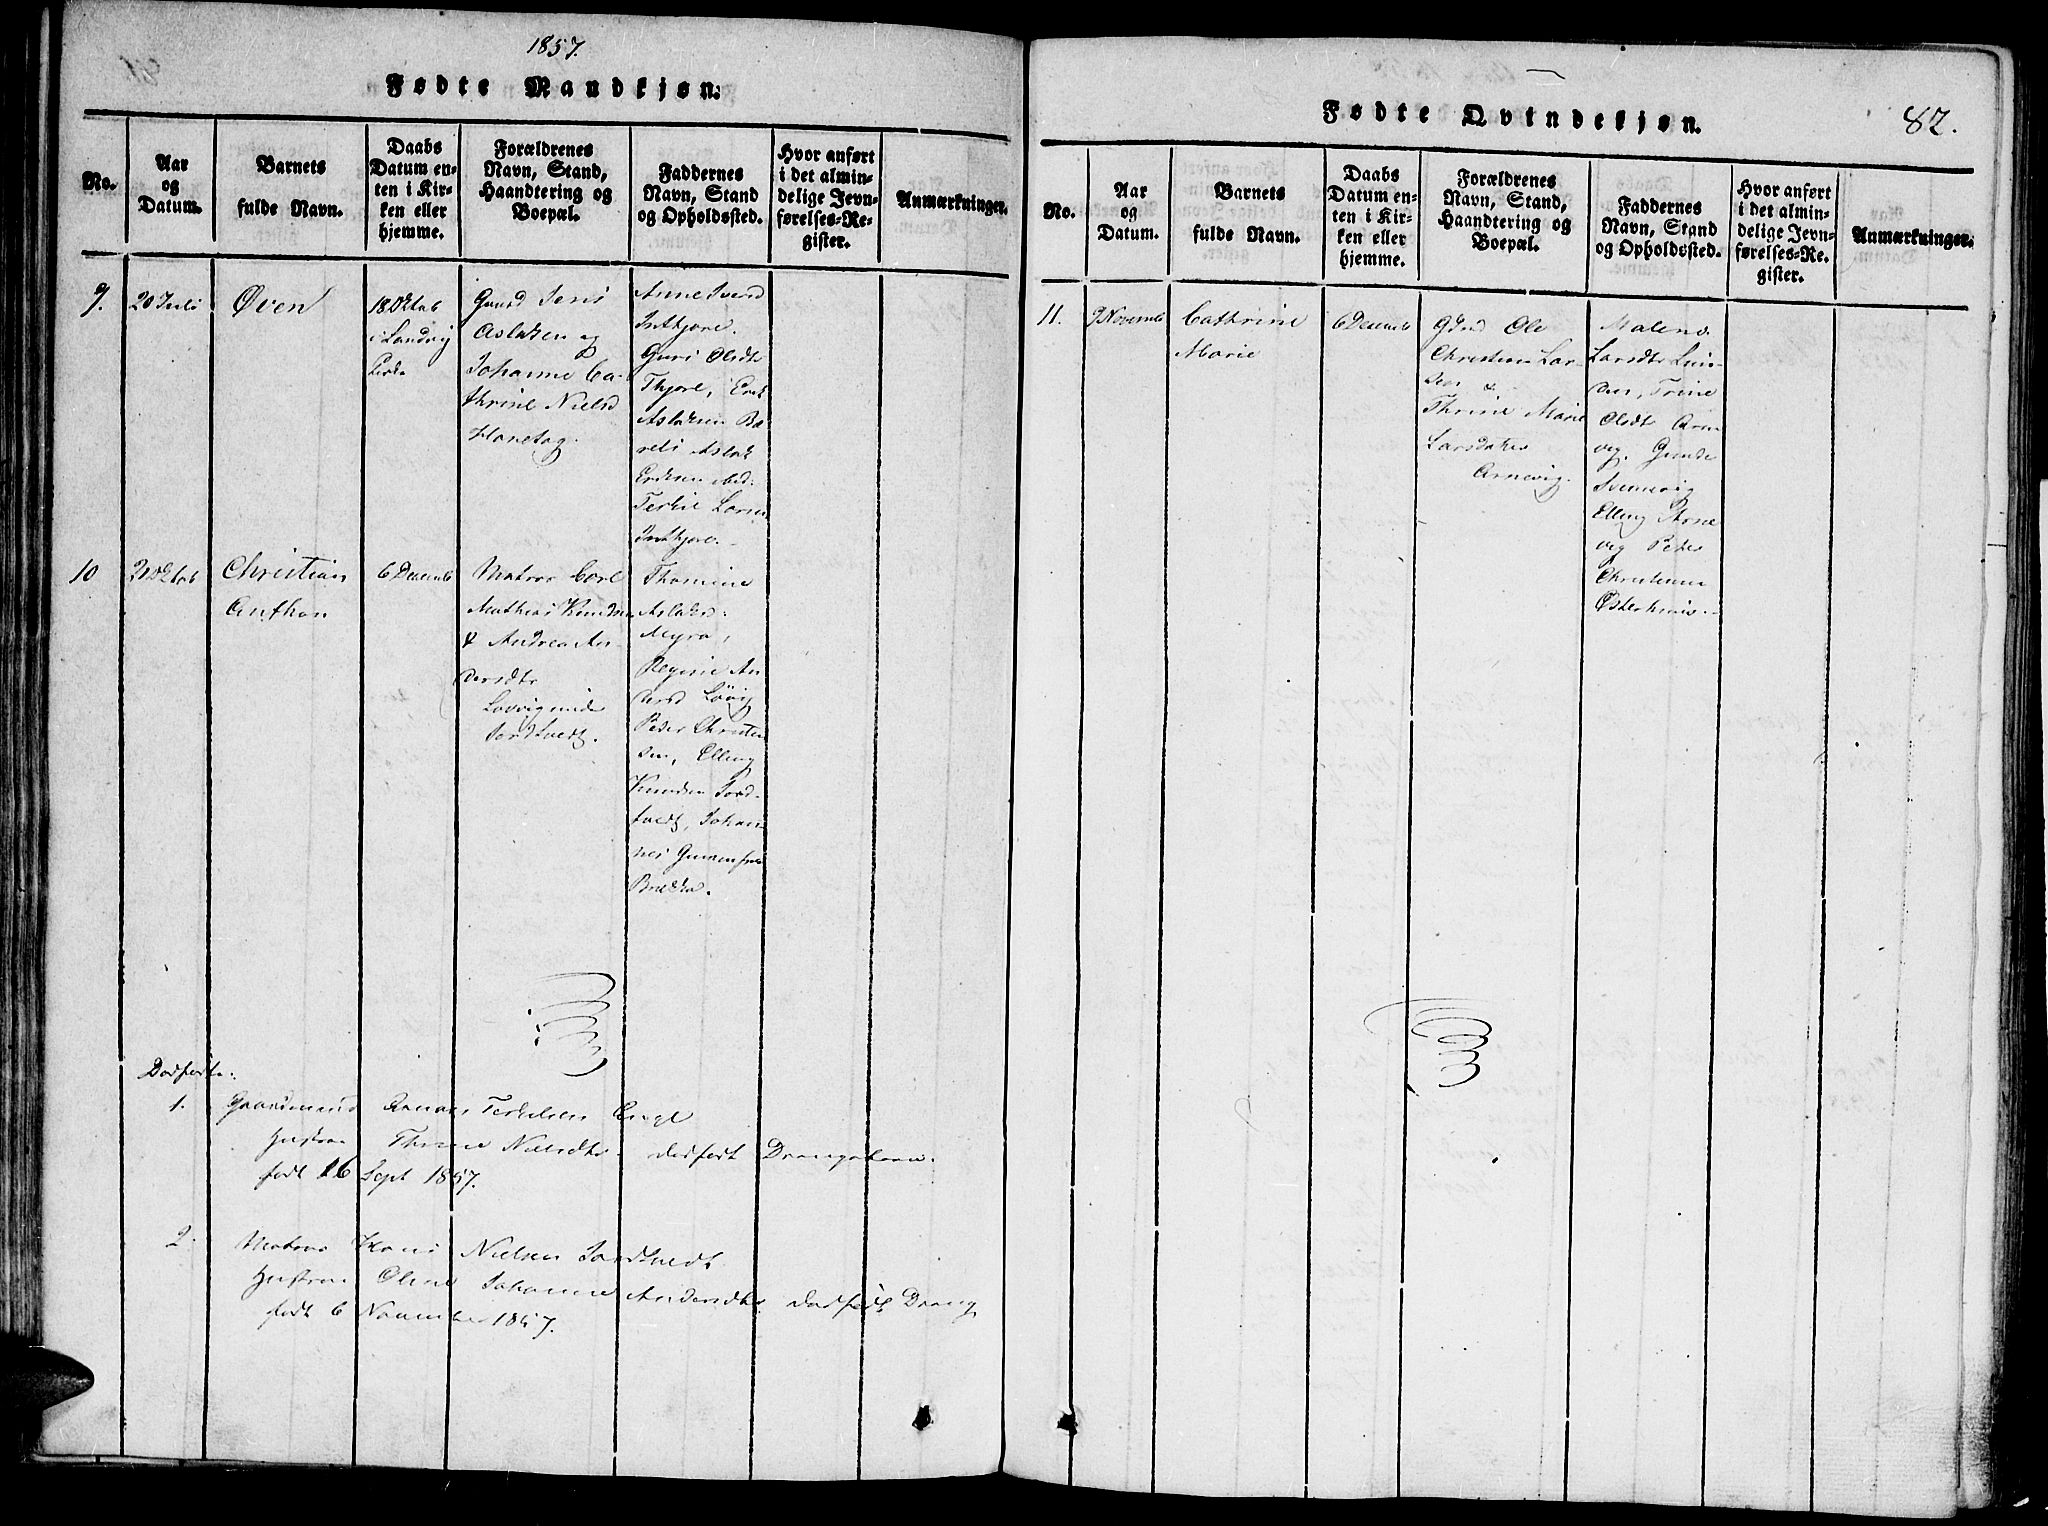 1857.
Fødte Mandkjøn.
No.
Aar
og
Datum.
Barnets
fulde Navn.
Daabs
Datum en-
ten i Kir-
ken eller
hjemme.
Forældrenes
Navn, Stand,
Haandtering og
Boepæl.
Faddernes
Navn, Stand
og Opholdssted.
Hvor anført
i det almin-
delige Jevn-
førelses-Re-
gister.
Anmærkninger.
9.
20 Juli
Øven
18 Oktob
i Landvig
Kirke
Gaard Jens
Aslaksen og
Johanne Ca-
thrine Nielsd
Hanetog.
Anne
Inthjore.
Guri Olsdtr
Thjore, Erik
Aslaksen Bo
Aslak
Eriksen ibid.
Larsen
Inthjore.
10
21 Oktob
Christian
Anthon
6 Decemb
Matros Carl
Mathias Knudsen
& Andrea An-
dersdtr
Sordtvedt.
Thomine
Aslaksd.
Myra,
Regine An
dersd Løvig
Peder Christen
sen, Elling
Knudsen Sord-
tvedt, Johan
nes
Bredka.
Dødfødte.
1.
Gaardmand Terkelsen
Hustrue Thrine Nielsdtr. dødfødt Drengebarn.
født 16 Sept 1857.
2
Matros Hans Nielsen Sordtvedt
Hustrue Oline Johanne Andersdtr. dødfødt Dreng
født 6 November 1857.
Fødte Qvindekjøn.
82.
No.
Aar
og
Datum.
Barnets
fulde Navn.
Daabs
Datum en-
ten i Kir-
ken eller
hjemme.
Forældrenes
Navn, Stand,
Haandtering og
Boepæl.
Faddernes
Navn, Stand
og Opholdssted.
Hvor anført
i det almin-
delige Jevn-
førelses-Re-
gister.
Anmærkninger.
11.
9 Novemb
Cathrine
Marie
6 Decemb
Ole
Christian Lar-
sen &
Thrine Marie
Larsdatter
Arnevig.
Malene
Larsdtr Lun-
den, Trine
Olsdtr Arne
vig. Gunde
Svennevig
Elling Arne
vig Peder
Christensen
Østerhuus.